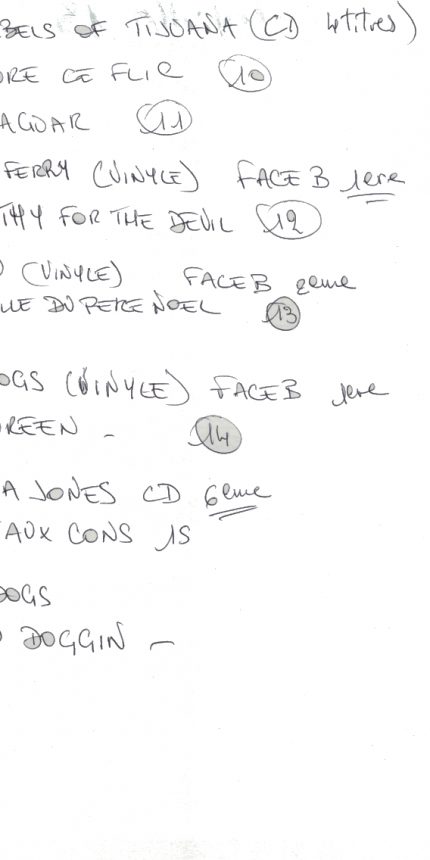 BELS OF TIJUANA (CD 4titres)
ORE CE FLIC 10
AGUAR 11
FERRY (VINYLE) FACE B 1ere
THY FOR THE DEVIL 12
(VINYLE) FACE B 2eme
LLE DU PERE NOEL 13
OGS (VINYLE) FACE B 1ere
REEN - 14
A JONES CD 6eme
AUX CONS 15
DOGS
DOGGIN -